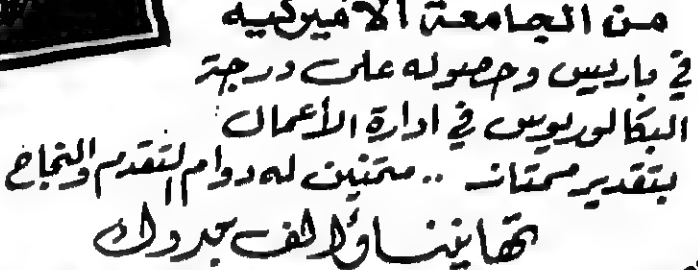 من الجامعة الأميركية
في باريس وحصوله على درجة
البكالوريوس في ادارة الأعمال
بتقدير ممتاز .. متمنين له دوام التقدم والنجاح
تهانينا وألف مبروك